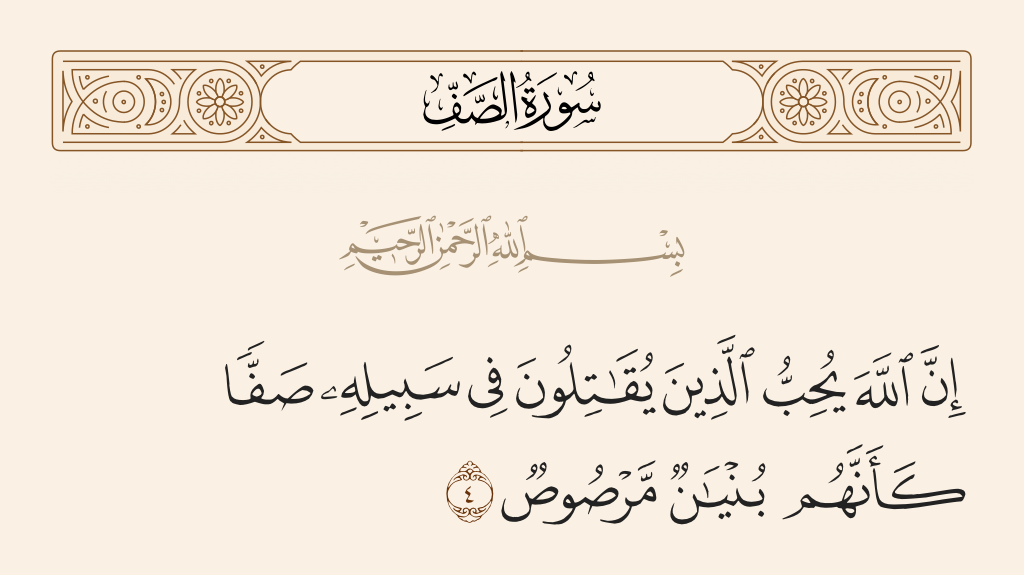 سُورَةُ الصَّفِّ
بِسْمِ ٱللَّهِ ٱلرَّحْمَٰنِ ٱلرَّحِيمِ
إِنَّ ٱللَّهَ يُحِبُّ ٱلَّذِينَ يُقَٰتِلُونَ فِى سَبِيلِهِۦ صَفًّا
كَأَنَّهُم بُنْيَٰنٌ مَّرْصُوصٌ ٤